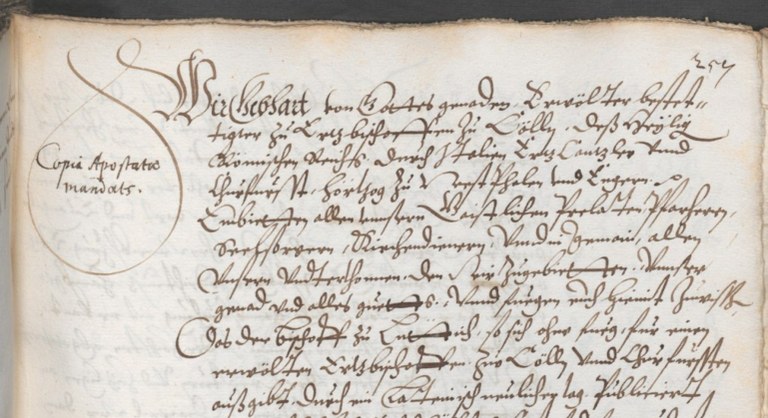 257
Copia Apostatæ
mandats.
Wir Gebhart von Gottes genaden Erwölter bestet-
tigter zu Ertzbischoffen zu Cölln, deß Heylig
Römischen Reichs durch Italien Ertz Cantzler vnnd
Churfürst, Hertzog zu Westphalen vnd Engern
Embietten allen vnnsern Gaistlichen Prelaten, Pfarherrn,
Seelsorgern, Kirchendienern, vnnd in gemain, allen
vnsern vndterthonen, den wir zugebietten, vnnser
genad vnd alles guetts, vnnd fuegen euch hiemit zuwissen
Das der bischoff zu Lüttich, so sich ohne fueg für einen
erwölten Ertzbischoffen zue Cölln vnnd Churfürsten
außgibt, durch ein Lateinisch neulicher tag Publiciert